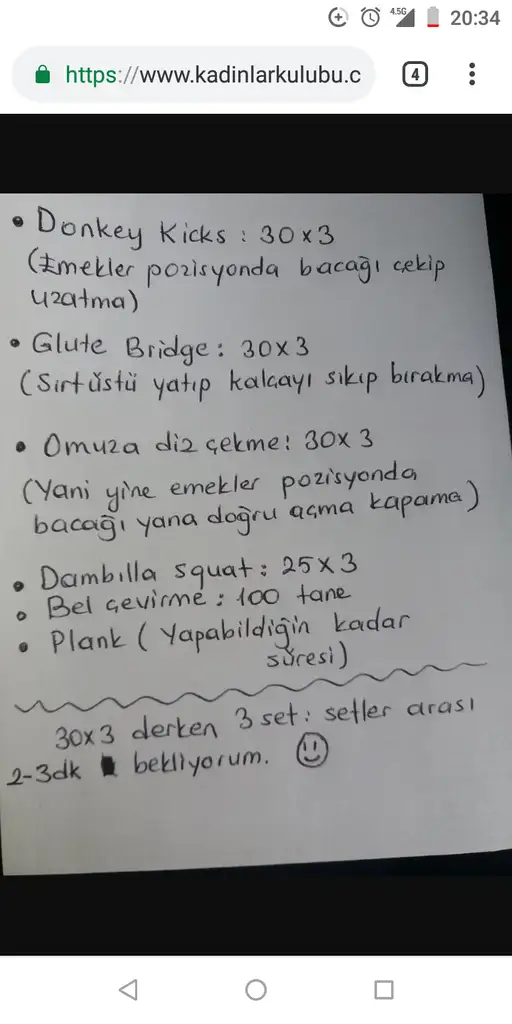 4.5G 20:34
https://www.kadinlarkulubu.c 4
• Donkey Kicks : 30x3
(Emekler pozisyonda bacağı çekip
uzatma)
• Glute Bridge: 30x3
(Sırtüstü yatıp kalçayı sıkıp bırakma)
• Omuza diz çekme: 30x3
(Yani yine emekler pozisyonda
bacağı yana doğru açma kapama)
• Dambılla squat: 25x3
• Bel çevirme : 100 tane
• Plank (Yapabildiğin kadar
süresi)
30x3 derken 3 set: setler arası
2-3dk bekliyorum.